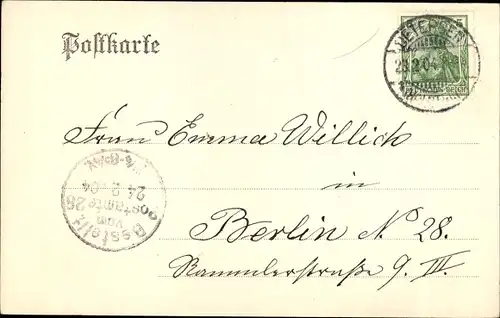 Postkarte
23.2.04
REICH
Frau Emma Willick
in
Berlin N 28.
Rammlerstraße 9. III.
Bestellt
vom
Postamte 28
24.2.04